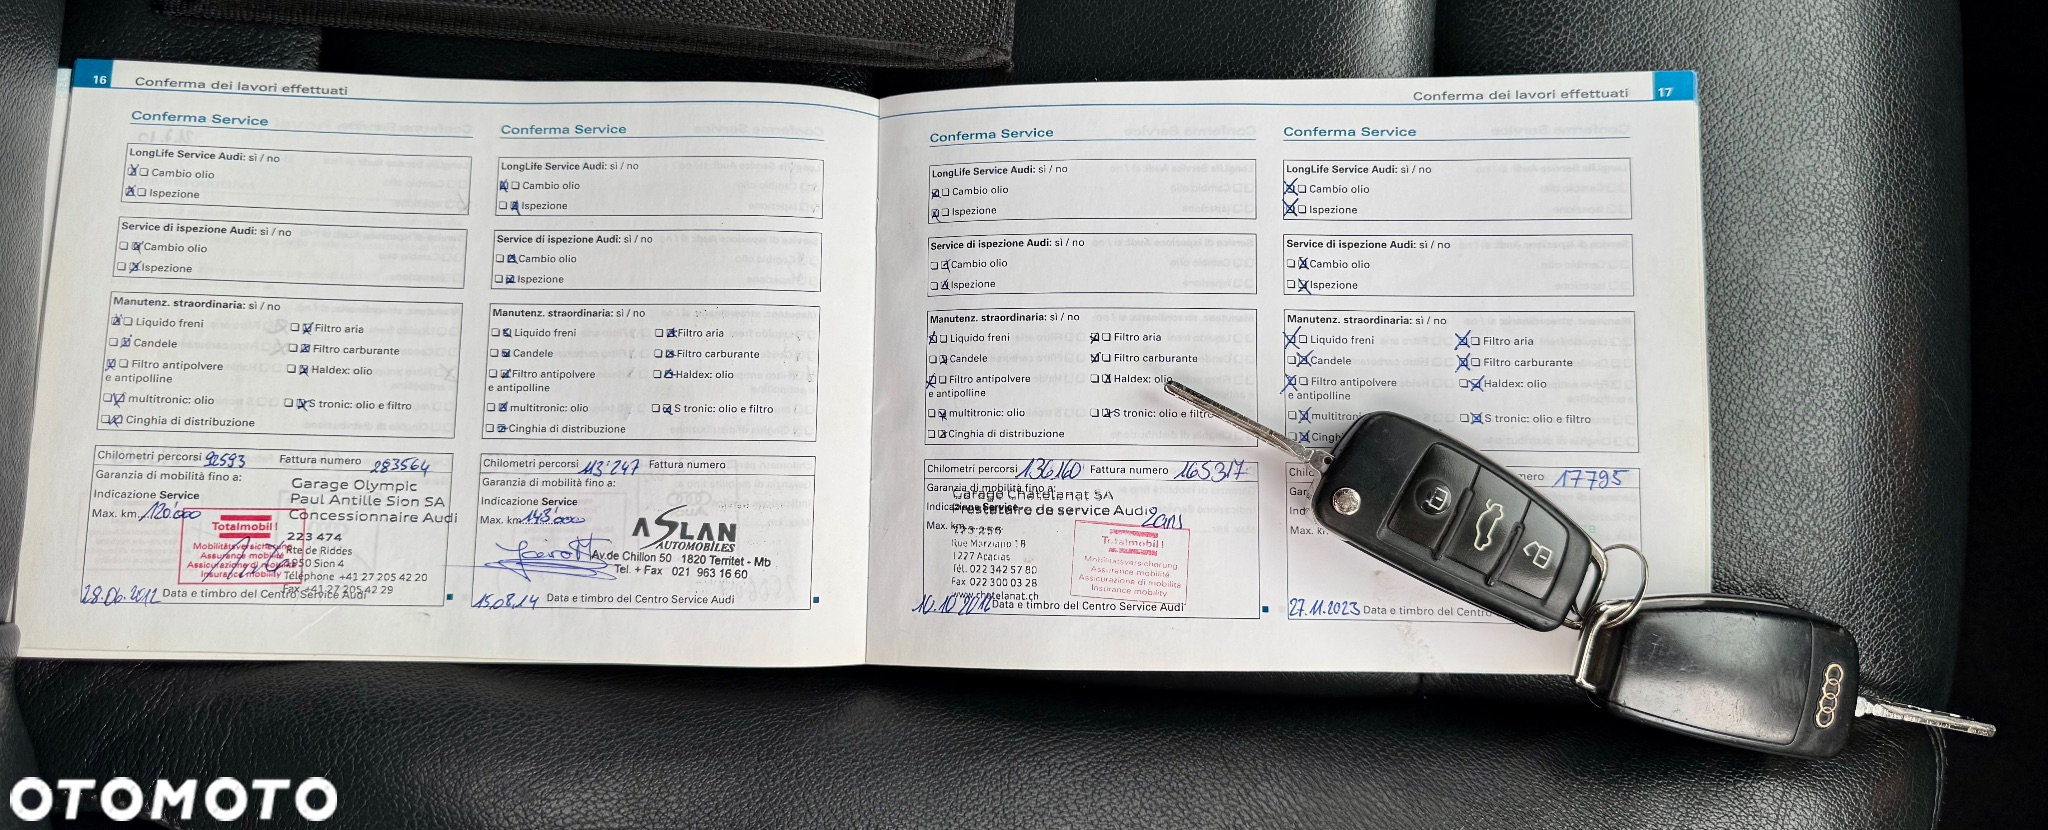 16 Conferma dei lavori effettuati
Conferma Service
LongLife Service Audi: sì / no
Cambio olio
Ispezione
Service di ispezione Audi: sì / no
Cambio olio
Ispezione
Manutenz. straordinaria: sì / no
Liquido freni Filtro aria
Candele Filtro carburante
Filtro antipolvere Haldex: olio
e antipolline
multitronic: olio S tronic: olio e filtro
Cinghia di distribuzione
Chilometri percorsi 92593 Fattura numero 283564
Garanzia di mobilità fino a:
Garage Olympic
Indicazione Service Paul Antille Sion SA
Max. km. 120'000 Concessionnaire Audi
Totalmobil!
223 474
Mobilitätsversicherung Rte de Riddes
Assurance mobilité 1950 Sion 4
Assicurazione di mobilità Téléphone +41 27 205 42 20
Insurance mobility Fax +41 27 205 42 29
28.06.2012 Data e timbro del Centro Service Audi
Conferma Service
LongLife Service Audi: sì / no
Cambio olio
Ispezione
Service di ispezione Audi: sì / no
Cambio olio
Ispezione
Manutenz. straordinaria: sì / no
Liquido freni Filtro aria
Candele Filtro carburante
Filtro antipolvere Haldex: olio
e antipolline
multitronic: olio S tronic: olio e filtro
Cinghia di distribuzione
Chilometri percorsi 113'247 Fattura numero
Garanzia di mobilità fino a:
Indicazione Service
Max. km. 143'000 ASLAN
AUTOMOBILES
Av.de Chillon 50 1820 Territet - Mb
Tel. + Fax 021 963 16 60
15.08.14 Data e timbro del Centro Service Audi
Conferma dei lavori effettuati 17
Conferma Service
LongLife Service Audi: sì / no
Cambio olio
Ispezione
Service di ispezione Audi: sì / no
Cambio olio
Ispezione
Manutenz. straordinaria: sì / no
Liquido freni Filtro aria
Candele Filtro carburante
Filtro antipolvere Haldex: olio
e antipolline
multitronic: olio S tronic: olio e filtro
Cinghia di distribuzione
Chilometri percorsi 136160 Fattura numero 165317
Garanzia di mobilità fino a:
Garage Châtelanat SA
Indicazione Service
Prestataire de service Audi 2ans
Max. km.
223 256
Rue Marziano 18 Totalmobil!
1227 Acacias Mobilitätsversicherung
Tél. 022 342 57 80 Assurance mobilité
Fax 022 300 03 28 Assicurazione di mobilità
www.chatelanat.ch Insurance mobility
Data e timbro del Centro Service Audi
Conferma Service
LongLife Service Audi: sì / no
Cambio olio
Ispezione
Service di ispezione Audi: sì / no
Cambio olio
Ispezione
Manutenz. straordinaria: sì / no
Liquido freni Filtro aria
Candele Filtro carburante
Filtro antipolvere Haldex: olio
e antipolline
multitronic S tronic: olio e filtro
Cingh
Chilo mero 17795
Gar
Ind
Max. k
27.11.2023 Data e timbro del Centro
OTOMOTO